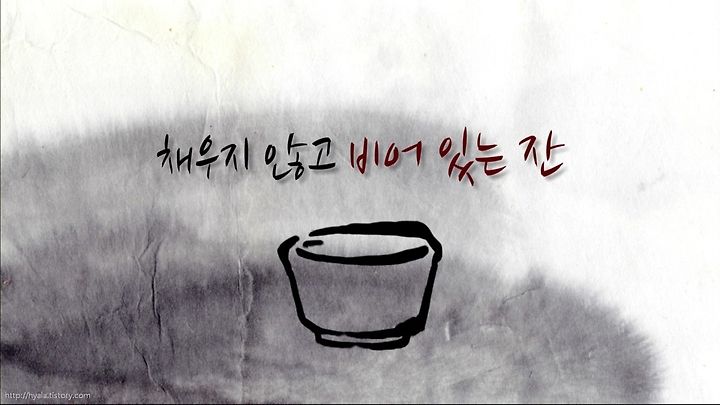 채우지 않고 비어 있는 잔
http://hyala.tistory.com